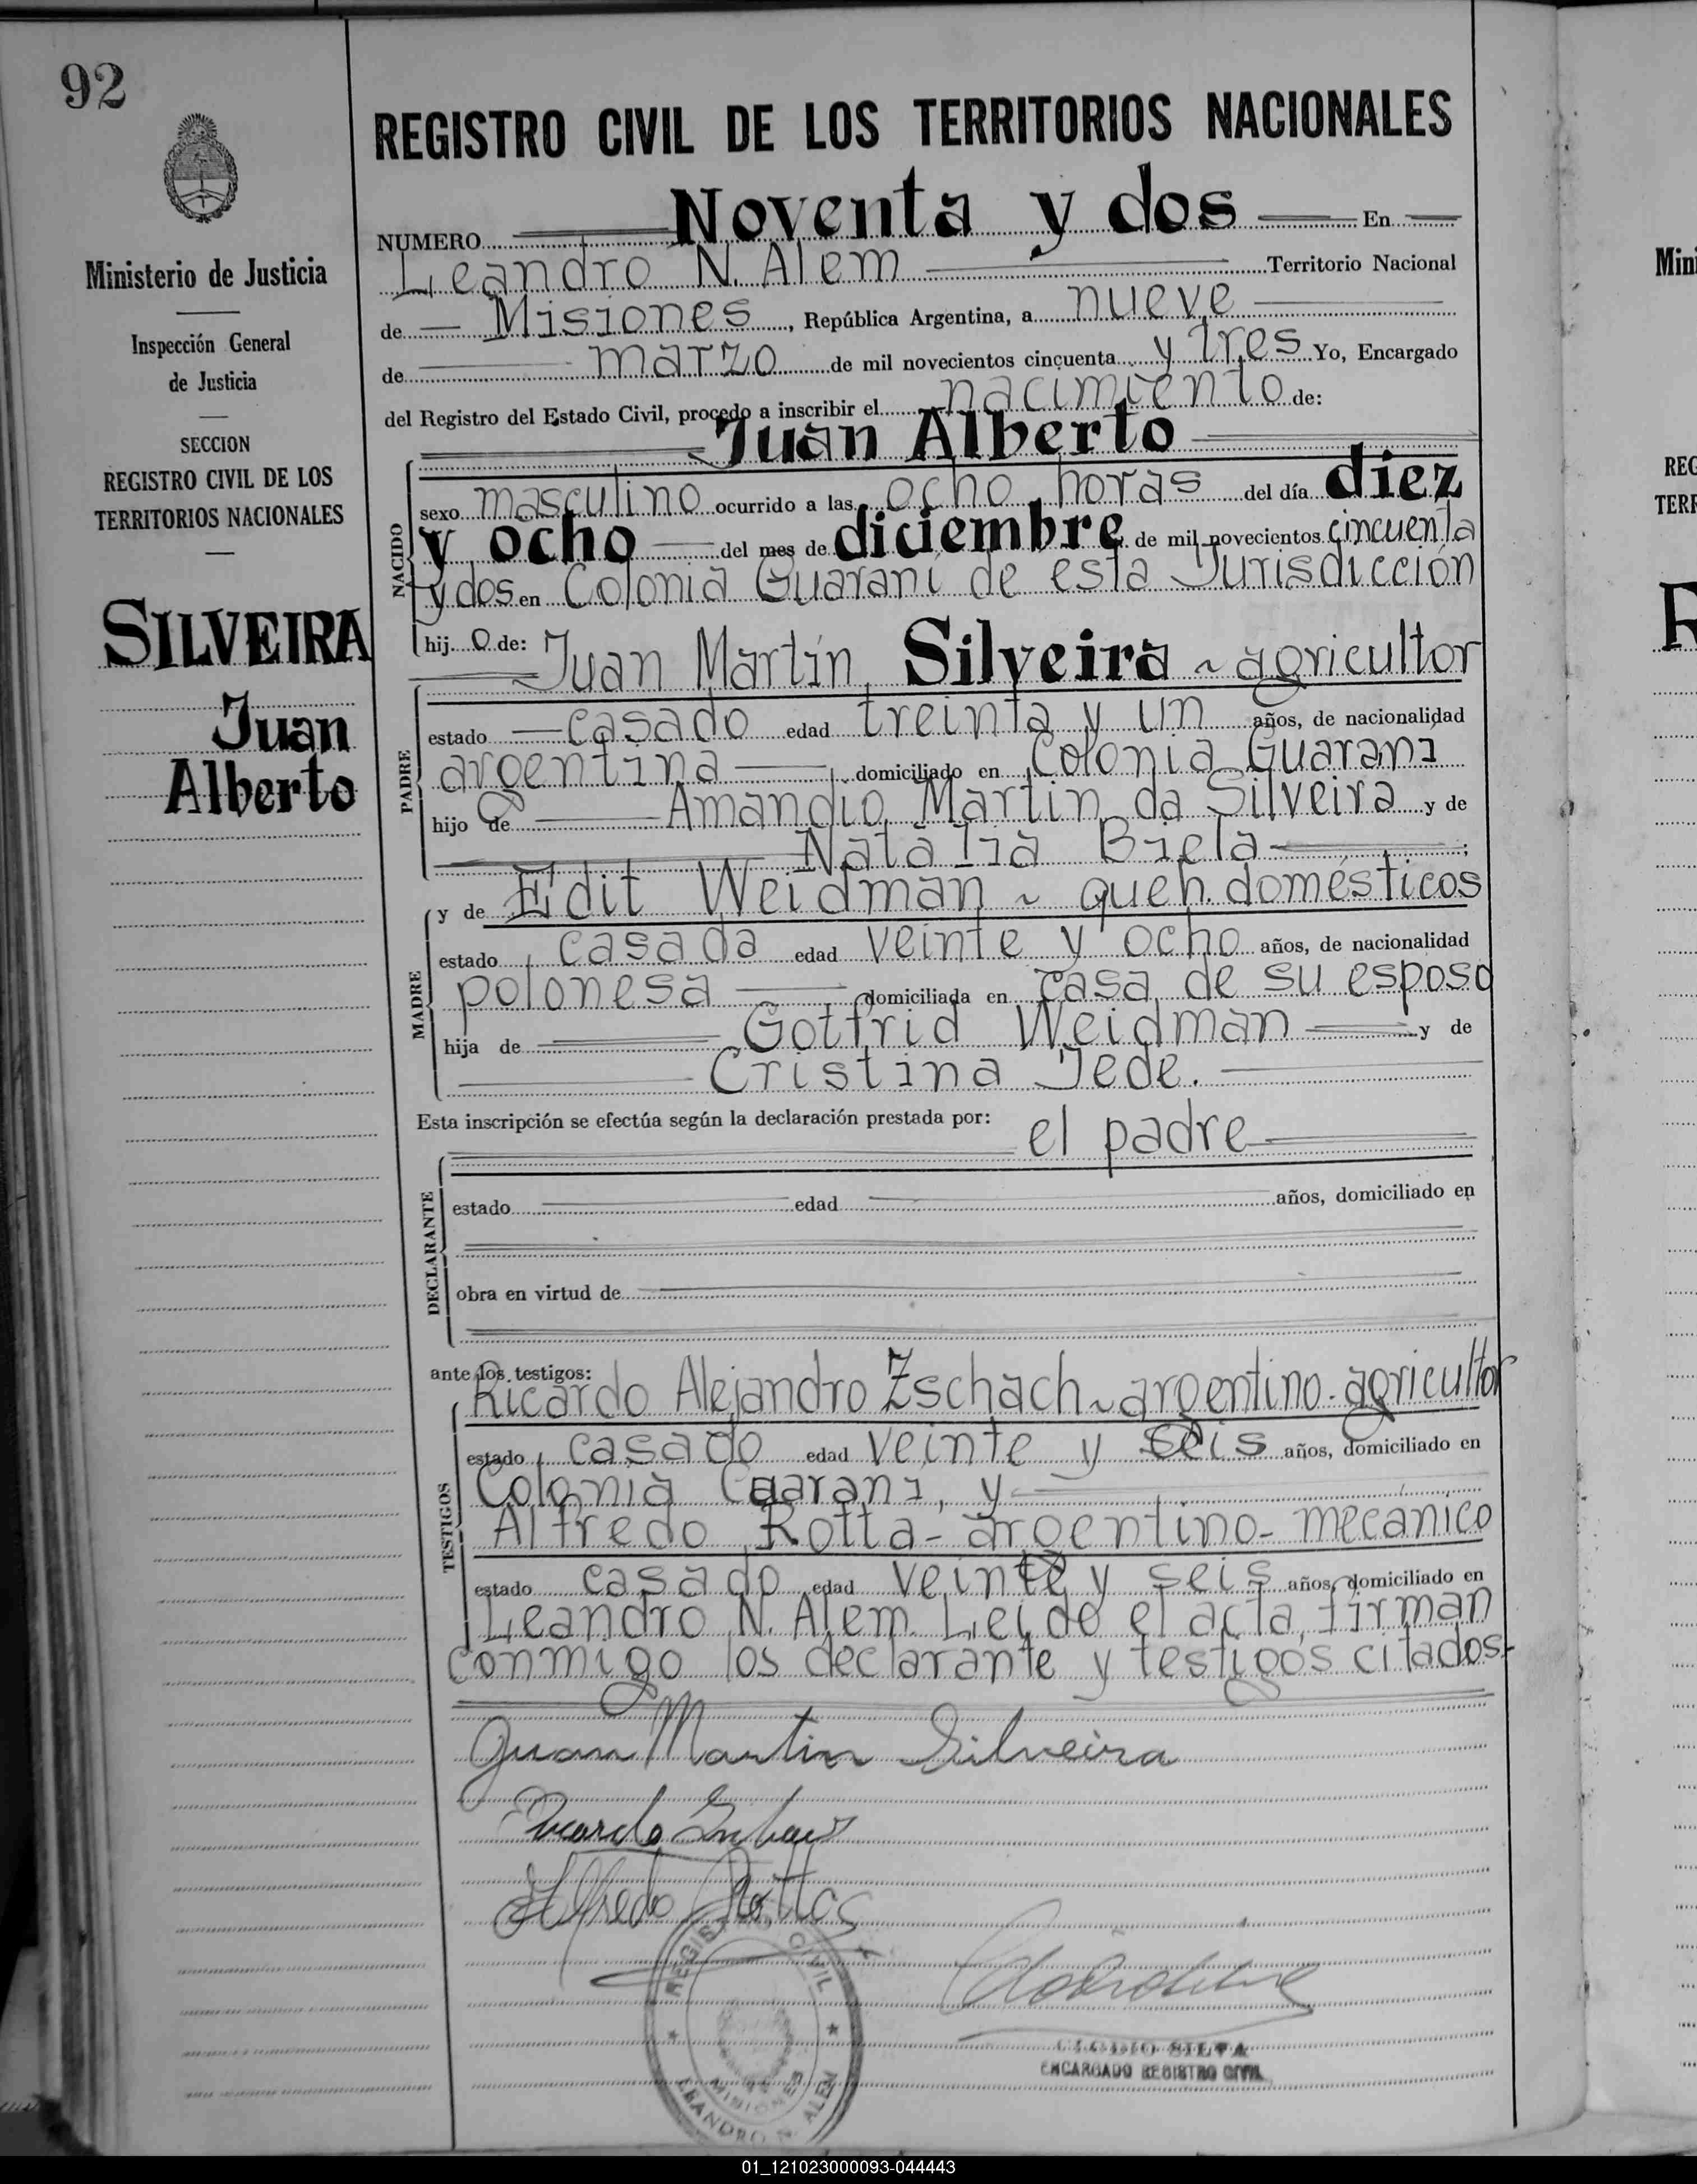 92
Ministerio de Justicia
Inspección General
de Justicia
SECCION
REGISTRO CIVIL DE LOS
TERRITORIOS NACIONALES
SILVEIRA
Juan
Alberto
REGISTRO CIVIL DE LOS TERRITORIOS NACIONALES
NUMERO Noventa y dos En
Leandro N. Alem Territorio Nacional
de Misiones, República Argentina, a nueve
de marzo de mil novecientos cincuenta y tres Yo, Encargado
del Registro del Estado Civil, procedo a inscribir el nacimiento de:
Juan Alberto
NACIDO
sexo masculino ocurrido a las ocho horas del día diez
y ocho del mes de diciembre de mil novecientos cincuenta
y dos en Colonia Guaraní de esta Jurisdicción
hij o de: Juan Martín Silveira ~ agricultor
PADRE
estado casado edad treinta y un años, de nacionalidad
argentina domiciliado en Colonia Guaraní
hijo de Amandio Martin da Silveira y de
Natalia Biela ;
MADRE
y de Edit Weidman ~ queh. domésticos
estado casada edad veinte y ocho años, de nacionalidad
polonesa domiciliada en casa de su esposo
hija de Gotfrid Weidman y de
Cristina Jede.
Esta inscripción se efectúa según la declaración prestada por: el padre
DECLARANTE
estado edad años, domiciliado en
obra en virtud de
ante los testigos:
Ricardo Alejandro Zschach ~ argentino - agricultor
TESTIGOS
estado casado edad veinte y seis años, domiciliado en
Colonia Guaraní, y
Alfredo Rotta - argentino - mecánico
estado casado edad veinte y seis años, domiciliado en
Leandro N. Alem. Leído el acta, firman
conmigo los declarante y testigos citados.-
Juan Martin Silveira
Alfredo Rotta
REGISTRO CIVIL
MISIONES
LEANDRO N. ALEM
SILVA
ENCARGADO REGISTRO CIVIL
Mini
REG
TERR
01_121023000093-044443